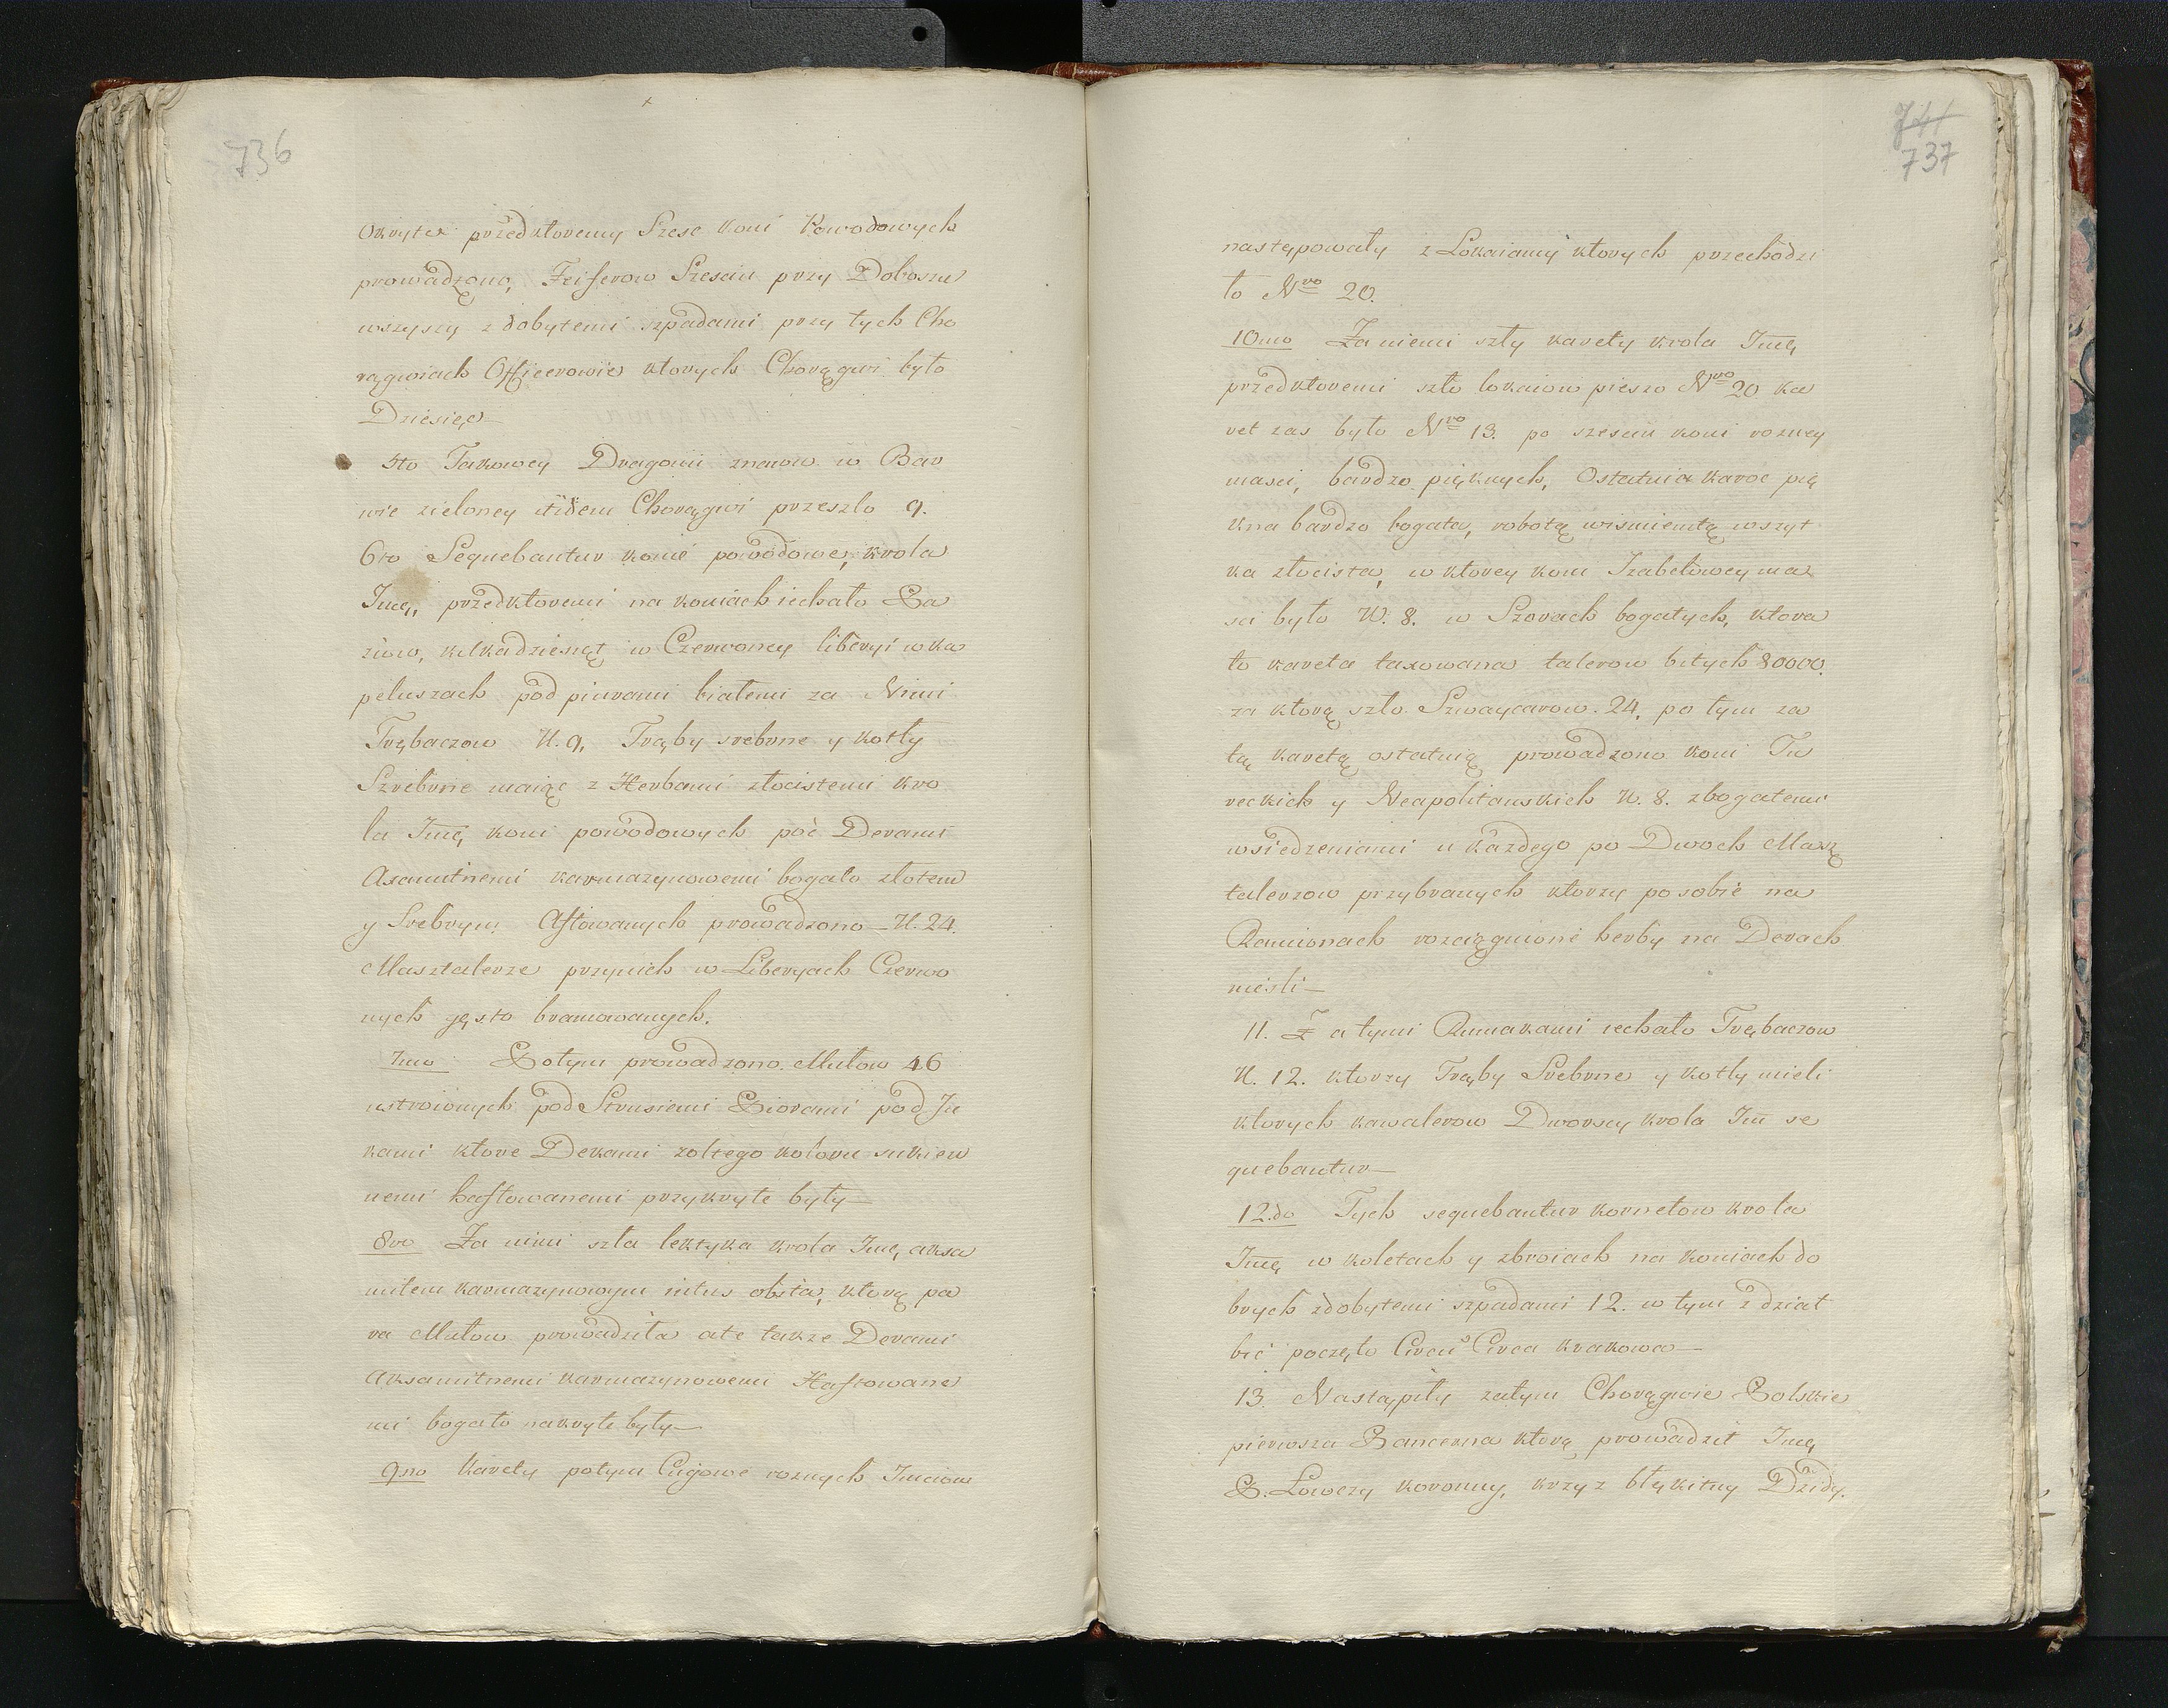 736
okryte przedktoremy Szesc koni Powodowych
prowadzono, Feiferow Szesciu przy Doboszu
wszyszy z dobytemi szpadami przy tych Cho
rągwiach Officerowie ktorych Chorągwi było
Dziesięc
5to Takowey Dragonii znowu w Bar
wie zieloney itidem Chorągwi przeszlo 9.
6to Sequebantur konie powodowe, krola
Jmę, przedktoremi na koniach iechało Pa
ziow, kilkadziesiąt w Czerwoney liberyi w ka
peluszach pod piurami białemi za Nimi
Trębaczow N. 9. Trąby srebrne y kotły
Szrebrne maiąc z Herbami złocistemi kro
la Jmę, koni powodowych pod Derami
Axamitnemi karmazynowemi bogato złotem
y Srebrym Aftowanych prowadzono N. 24.
Masztalerze przynich w Liberyach Czerwo
nych gęsto bramowanych.
7mo Potym prowadzono Mułow 46
ustroionych pod Strusiemi Piorami pod Ju
kami ktore Dekami zołtego koloru sukien
nemi haftowanemi przykryte były
8vo Za nimi szła lektyka krola Jmę, aksa
mitem karmazynowym intus obita, ktorą pa
ra Mułow prowadziła ale także Derami
aksamitnemi karmazynowemi Haftowane
mi bogato nakryte były
9no Karety potym Cugowe roznych Jmciow
741
737
następowały z Lokaiamy ktorych przechodzi
ło Nro 20.
10mo Zaniemi szły karety krola Jmę
przedktoremi szło lokaiow pieszo Nro 20 ka
ret zas było Nro 13. po szesciu koni rozney
masci, bardzo pięknych, Ostatnia karoc pię
kna bardzo bogata, robotą wismienitą wszyt
ka złocista, w ktorey koni Izabelowey ma
sci było N. 8. w Szorach bogatych, ktora
to kareta taxowana talerow bitych 80000.
za ktorą szło Szwaycarow. 24. po tym za
tą karetą ostatnią prowadzono koni Tu
reckich y Neapolitanskich N. 8. zbogatemi
wsiedzeniami u każdego po Dwoch Masz
talerzow przybranych ktorzy po sobie na
Ramionach rozciągnione herby na Derach
niesli
11. Za tymi Rumakami iechało Trębaczow
N. 12. ktorzy Trąby Srebrne y kotły mieli
ktorych kawalerow Dworscy krola Jm se
quebantur
12.do Tych sequebantur kornetow krola
Jmę w koletach y zbroiach na koniach do
brych zdobytemi szpadami 12. w tym z dział
bić poczęto Circu Circa krakowa
13. Nastąpiły zatym Chorągwie Polskie
pierwsza Pancerna ktorą prowadził Jmę
P. Łowczy koronny, krzyz błękitny Dzidy.